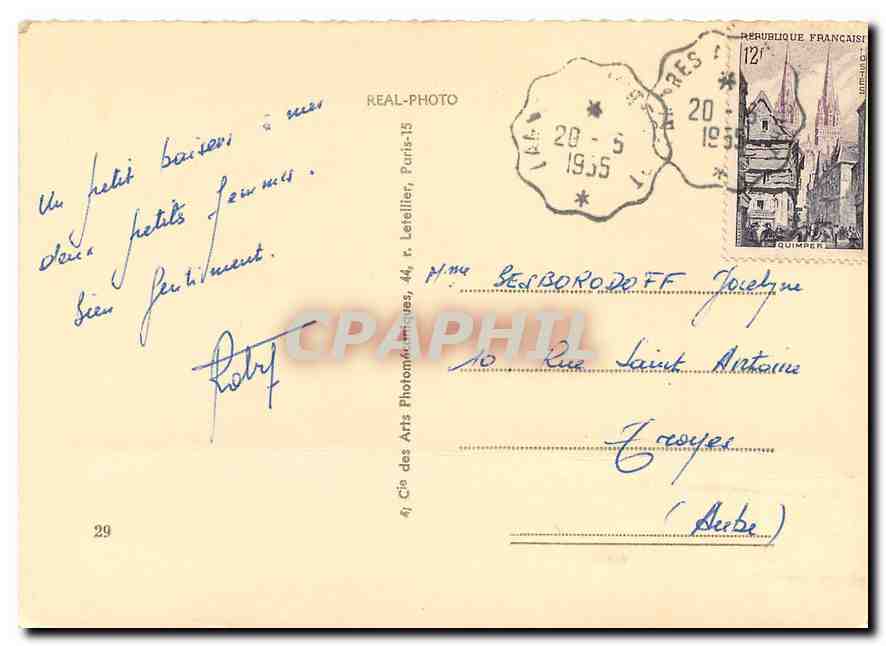 REAL-PHOTO
Un petit baisers à mes
deux petits femmes.
Bien gentiment.
29
4; Cie des Arts Photomécaniques, 44, r. Letellier, Paris-15
20 - 5
1955
20 -
1955
REPUBLIQUE FRANÇAISE
12f
POSTES
QUIMPER
Mme SESBORODOFF Jocelyne
10 Rue Saint Antoine
Troyes
(Aube)
CPAPHIL